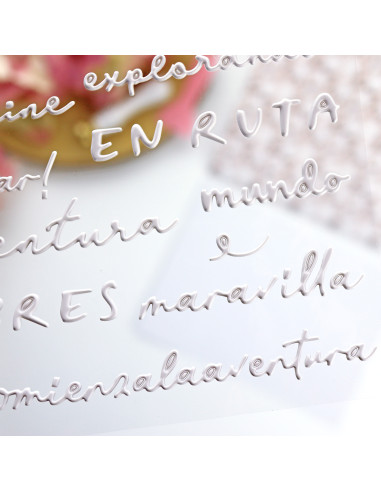 ine explorando
EN RUTA
ar!
entura mundo
e
RES maravilla
omienzalaaventura